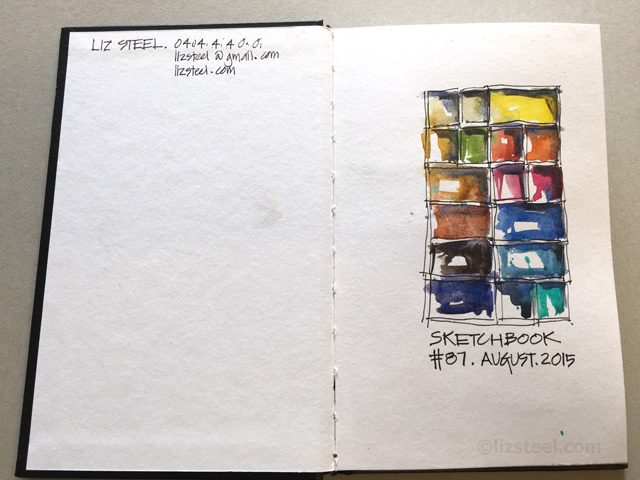 LIZ STEEL. 0404. 4. 4 0. 0.
lizsteel@gmail.com
lizsteel.com
SKETCHBOOK
#87. AUGUST. 2015
©lizsteel.com